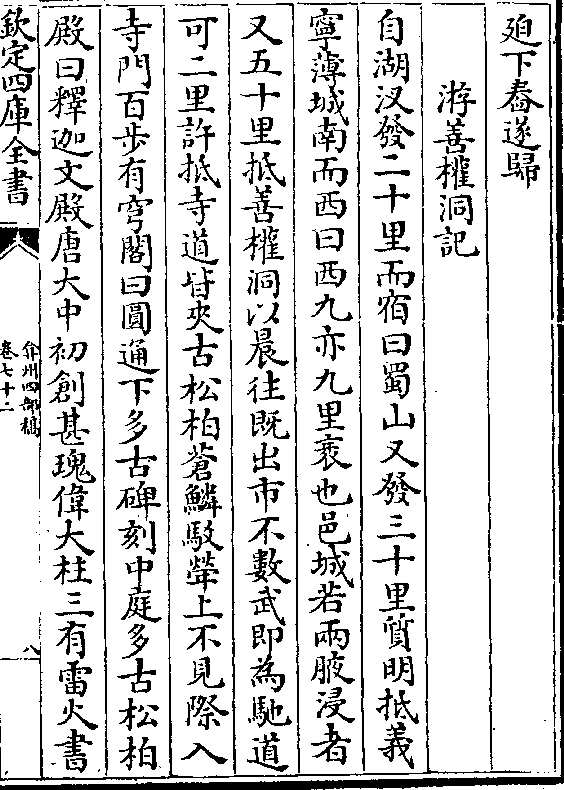 廹下舂遂歸
游善權洞記
自湖㳇發二十里而宿曰蜀山又發三十里質明抵義
寧薄城南而西曰西九亦九里袤也邑城若兩腋浸者
又五十里抵善權洞以晨往既出市不數武即為馳道
可二里許抵寺道皆夾古松柏蒼鱗駁犖上不見際入
寺門百步有穹閣曰圓通下多古碑刻中庭多古松柏
殿曰釋迦文殿唐大中初創甚瑰偉大柱三有雷火書
欽定四庫全書
弇州四部稿
卷七十二
八